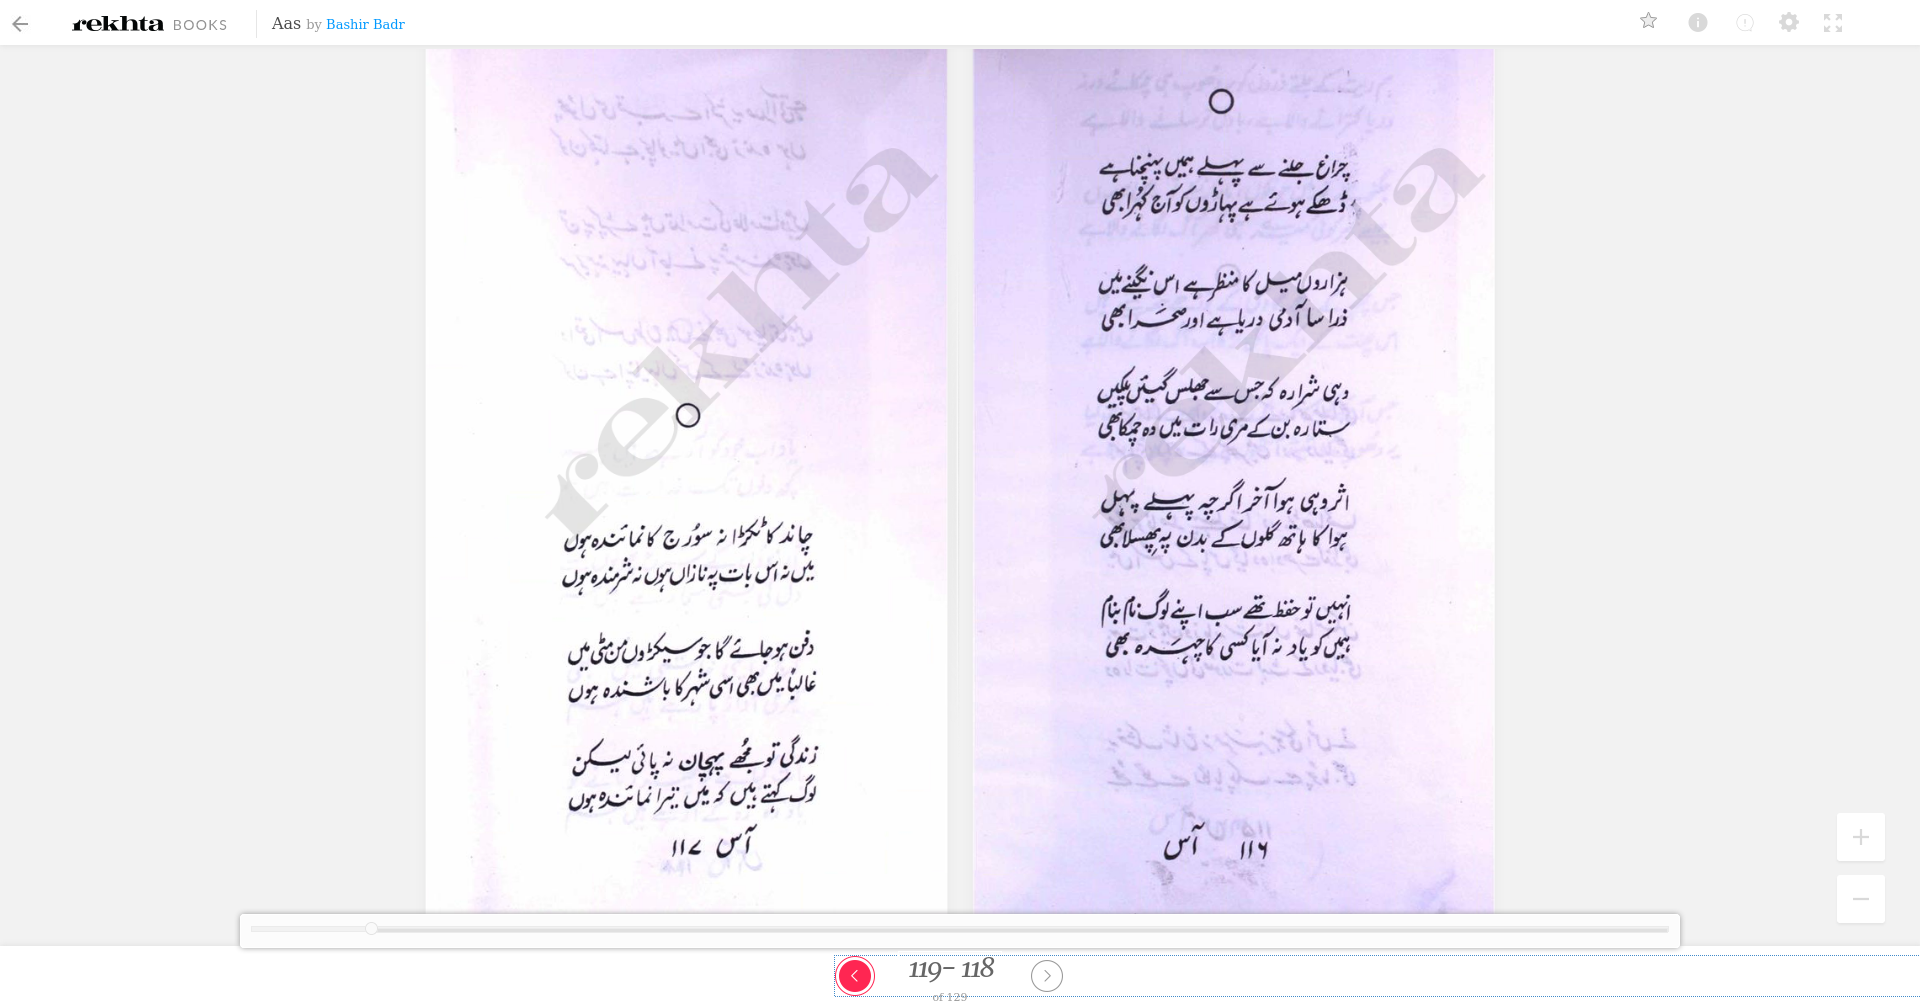 rekhta BOOKS Aas by Bashir Badr
چراغ جلنے سے پہلے ہمیں پہنچنا ہے
ڈھکے ہوئے ہے پہاڑوں کو آج کُہرا بھی
ہزاروں میل کا منظر ہے اس نگینے میں
ذرا سا آدمی دریا ہے اور صحرا بھی
وہی شرارہ کہ جس سے جھلس گئیں پلکیں
ستارہ بن کے مری رات میں وہ چمکا بھی
اثر وہی ہوا آخر اگرچہ پہلے پہل
ہوا کا ہاتھ گلوں کے بدن پہ پھسلا بھی
انہیں تو حفظ تھے سب اپنے لوگ نام بنام
ہمیں کو یاد نہ آیا کسی کا چہرہ بھی
۱۱۶ آس
چاند کا ٹکڑا نہ سوُرج کا نمائندہ ہوں
میں نہ اس بات پہ نازاں ہوں نہ شرمندہ ہوں
دفن ہو جائے گا جو سیکڑوں من مٹی میں
غالباً میں بھی اسی شہر کا باشندہ ہوں
زندگی تو مجُھے پہچان نہ پائی لیکن
لوگ کہتے ہیں کہ میں تیرا نمائندہ ہوں
آس ۱۱۷
rekhta
rekhta
119- 118
of 129